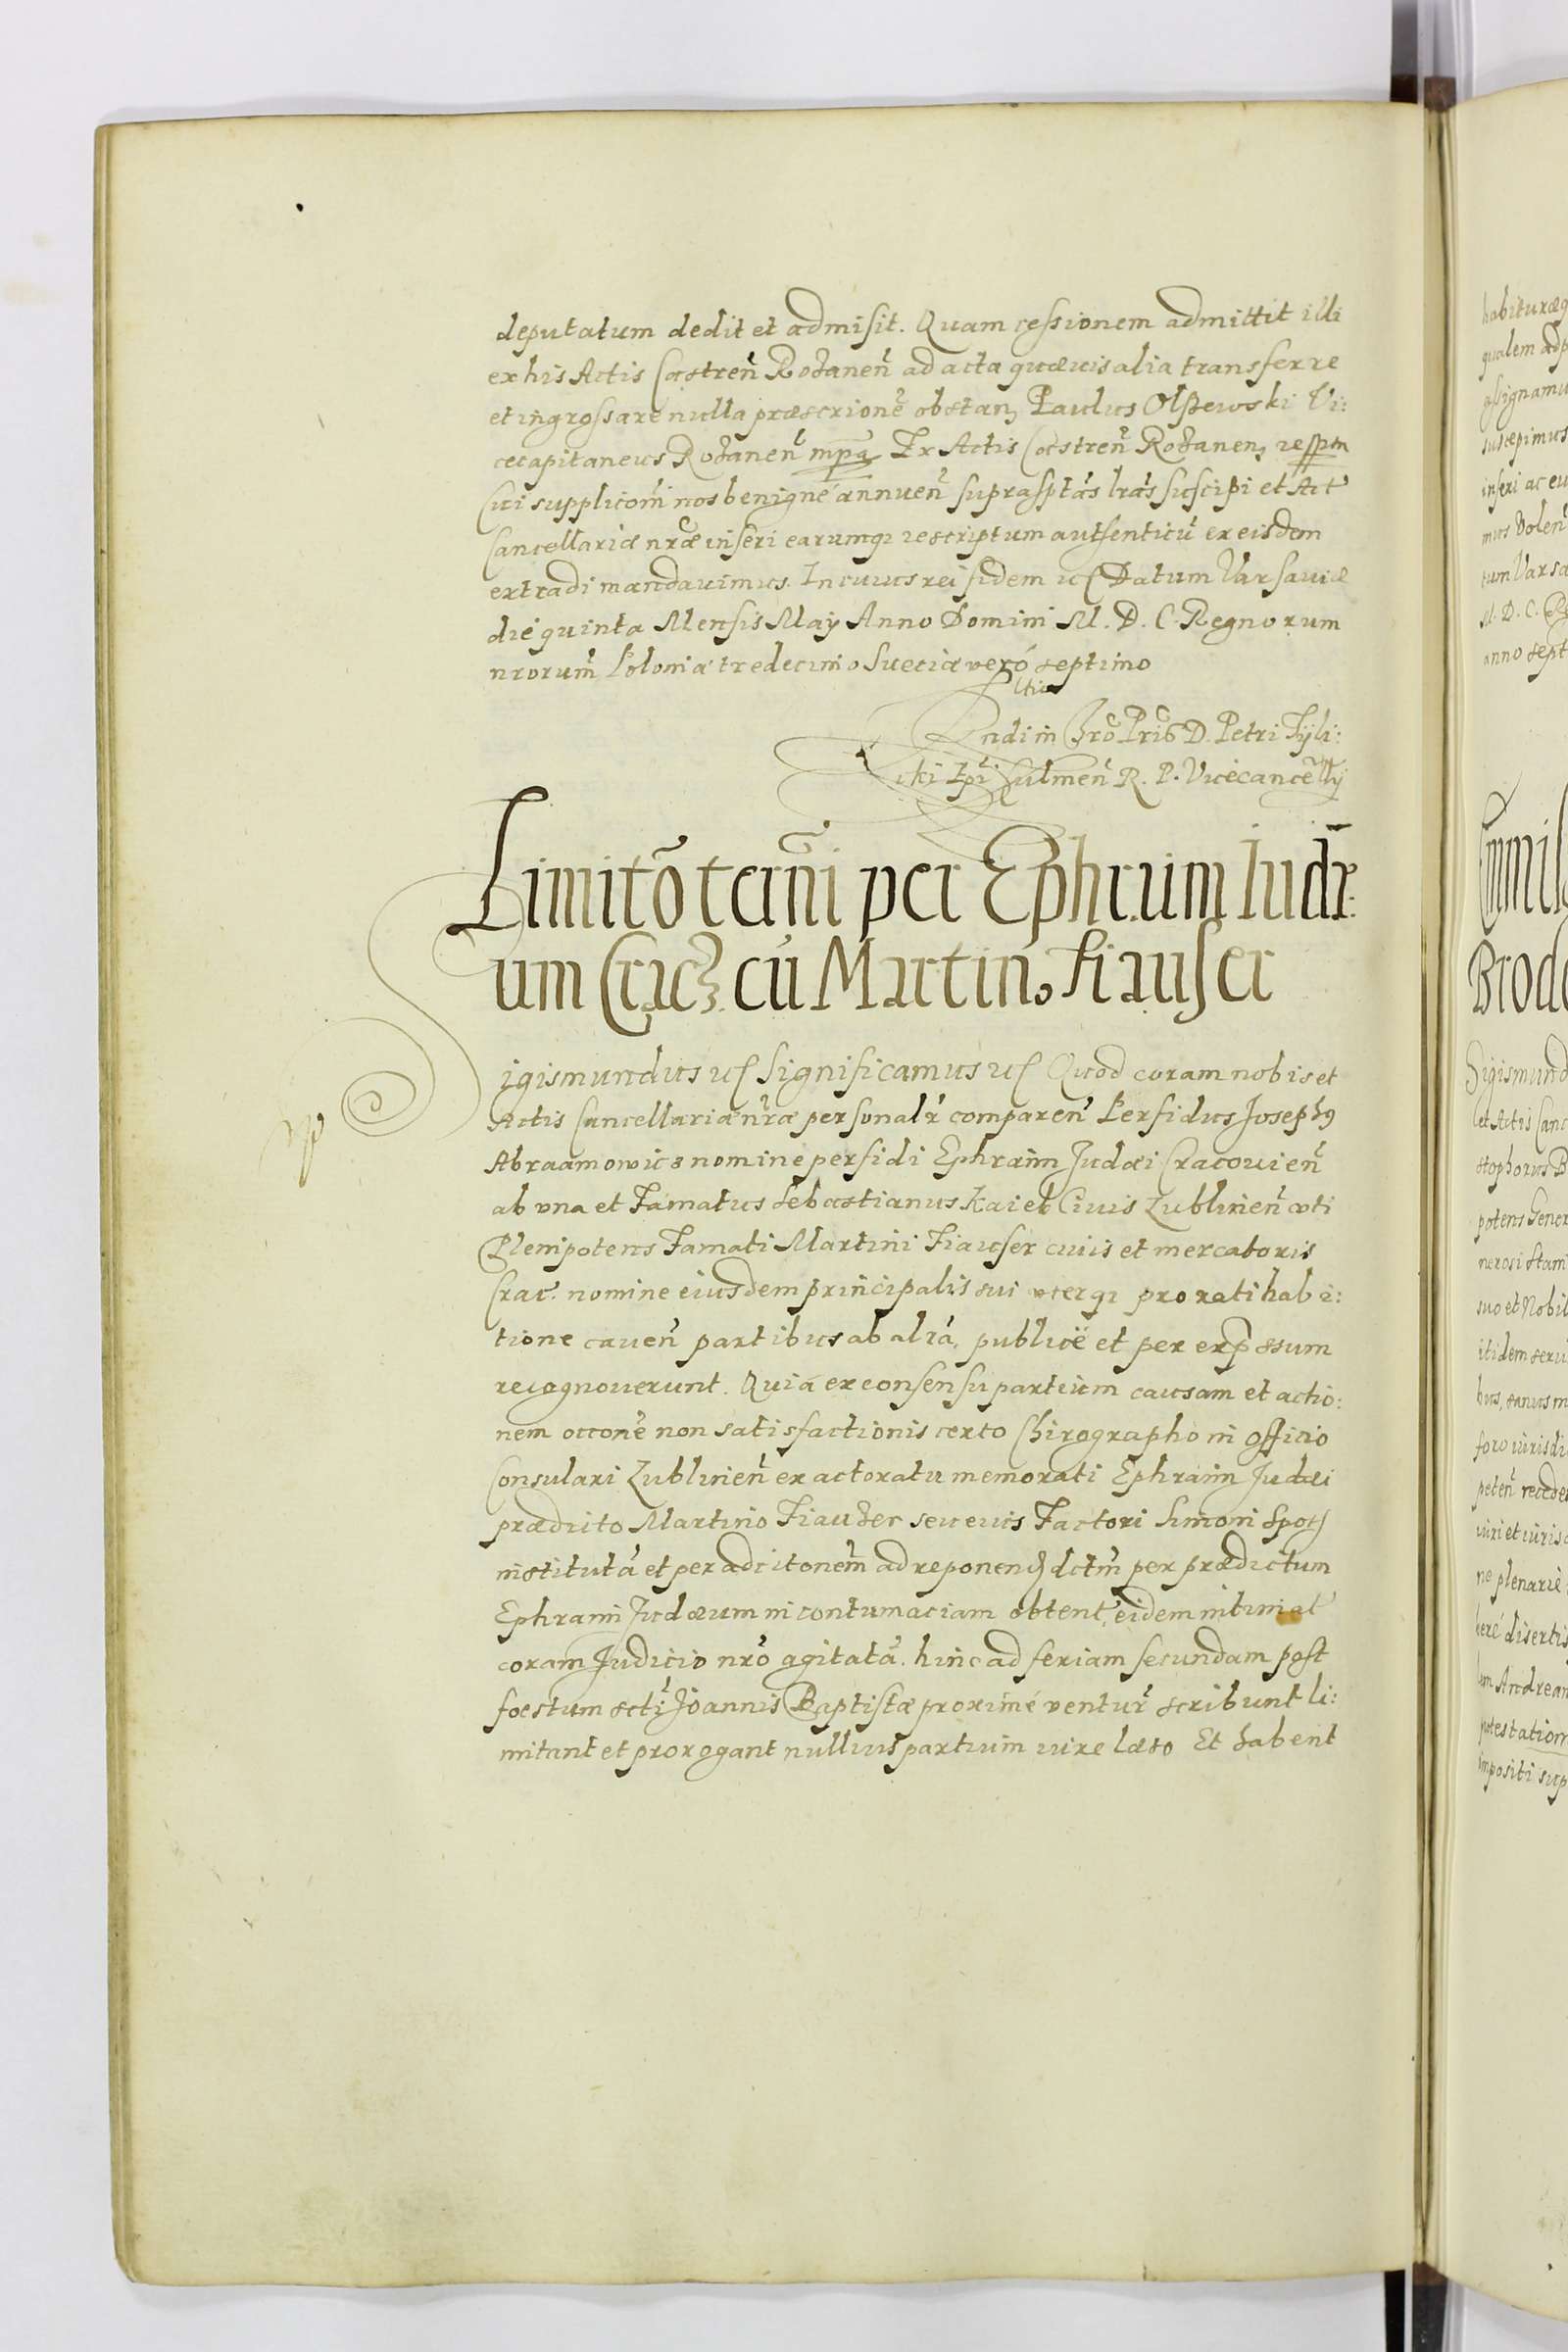 deputatum dedit et admisit. Quam cessionem admittit illi
ex his Actis Castren̄ Rohanen̄ ad acta quævis alia transferre
et ingrossare nulla præscrione obstan, Paulus Olszewski Vi:
cecapitaneus Rohanen̄ mpa Ex Actis Castren̄ Rohanen, resptm
Cui supplicōni nos benigné annuen̄ suprasptas lras suscipi et Act
Cancellariæ nræ inseri earumq rescriptum authenticū ex eisdem
extradi mandavimus. In cuius rei fidem uc Datum Varsaviæ
die quinta Mensis Maÿ Anno Domini M. D. C. Regnorum
nrorum Poloniæ tredecimo Sueciæ veró septimo
ltio
ndi in Chro Pris D. Petri Tÿli:
cki Epi Culmen̄ R. P. Vicecancellÿ
Limitō termini per Ephraim Iudæ:
um Crac, cū Martino Fiauser
Sigismundus uc Significamus uc Quod coram nobis et
Actis Cancellariæ nræ personalr comparen̄ Perfidus Joseph9
Abraamowicz nomine perfidi Ephraim Judæi Cracovien̄
ab una et Famatus Sebastianus Kaiet Civis Lublinen̄ uti
Plenipotens Famati Martini Fiauser civis et mercatoris
Crac. nomine eiusdem principalis sui uterq pro ratihabi:
tione caven̄ partibus ab altá, publicè et per expssum
recognoverunt. Quia ex consensu partium causam et actio:
nem occone non satisfactionis certo Chirographo in officio
Consulari Lublinen̄ ex actoratu memorati Ephraim Judæi
prædicto Martino Fiauser seu eius Factori Simoni Spot
institutá et per adcitonem̄ ad reponend dctm per prædictum
Ephraim Judæum in contumaciam obtent eidem intimat
coram Judicio nrō agitatá. hinc ad feriam secundam post
festum scti Joannis Baptistæ proximé ventur̄ scribunt li:
mitant et prorogant nullius partium iure læso Et habent